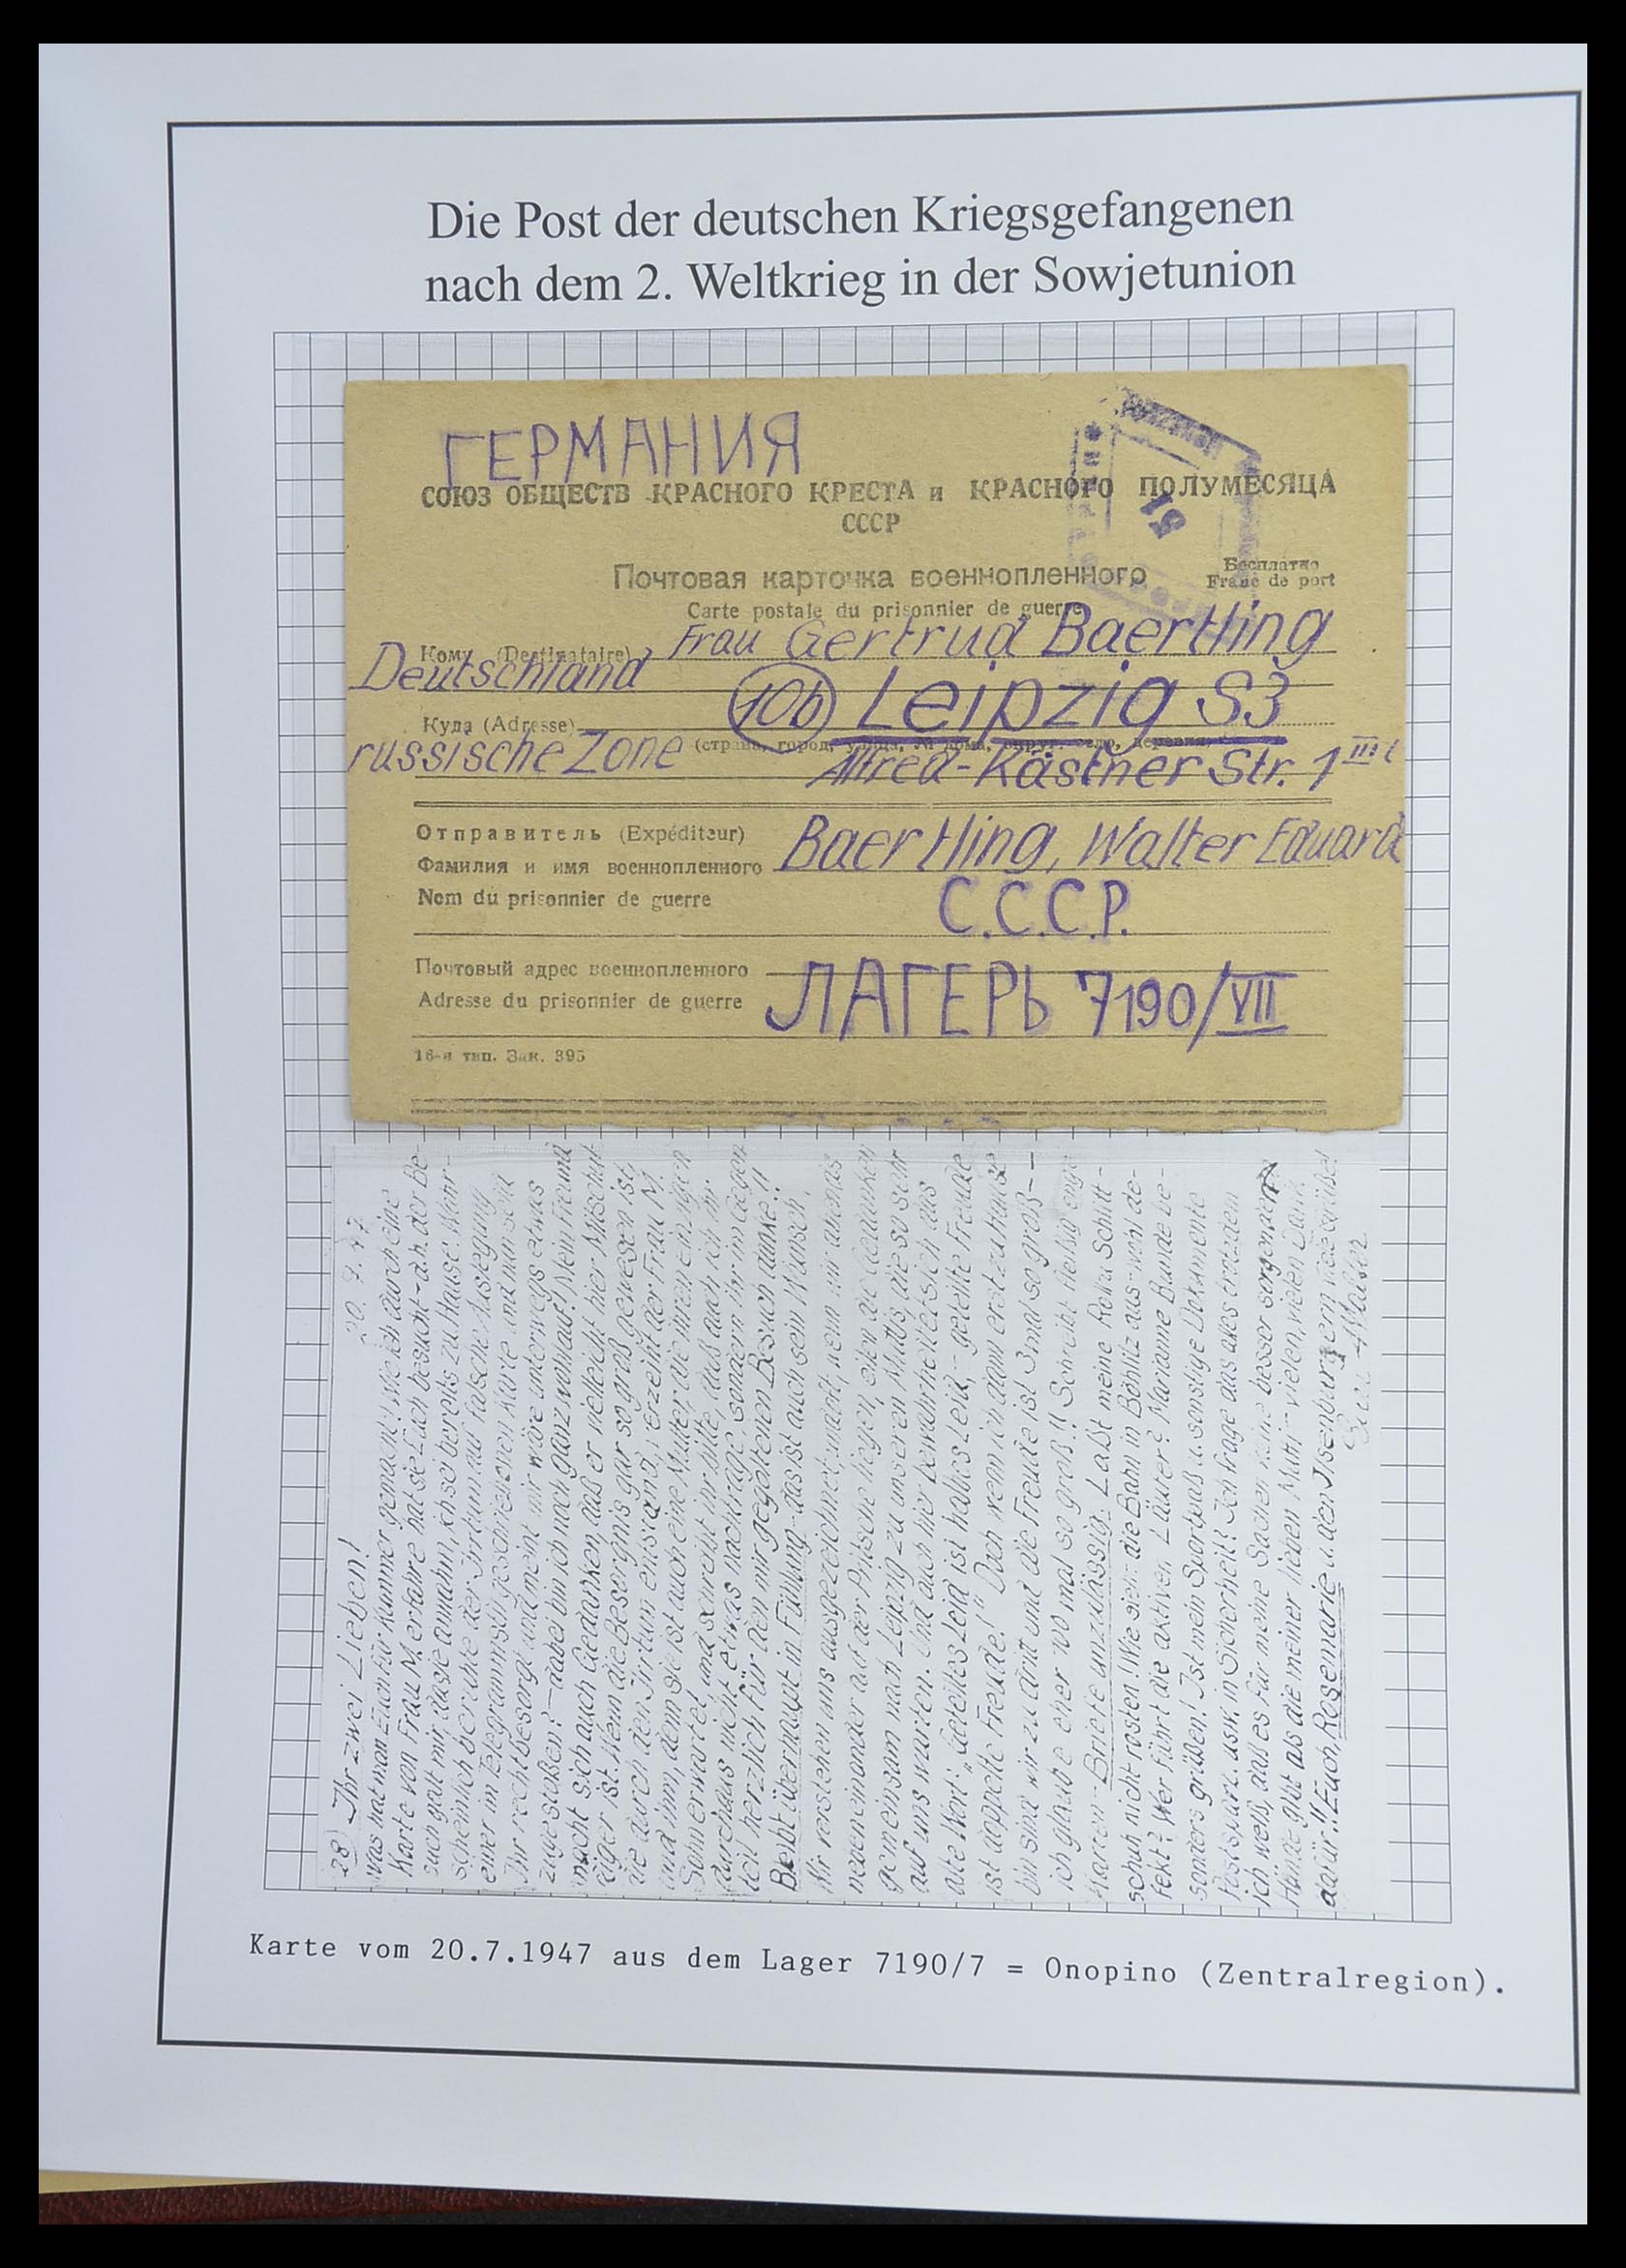 Die Post der deutschen Kriegsgefangenen
nach dem 2. Weltkrieg in der Sowjetunion
ГЕРМАНИЯ
СОЮЗ ОБЩЕСТВ КРАСНОГО КРЕСТА и КРАСНОГО ПОЛУМЕСЯЦА
СССР
51
Почтовая карточка военнопленного
Бесплатно
Franc de port
Carte postale du prisonnier de guerre
Кому (Destinataire) Frau Gertrud Baertling
Deutschland
10b Leipzig S3
Куда (Adresse)
russische Zone
(страна, город, улица, № дома, округ, село, деревня)
Alfred-Kästner Str. 1 III l
Отправитель (Expéditeur)
Фамилия и имя военнопленного Baertling, Walter Eduard
Nom du prisonnier de guerre
С.С.С.Р.
Почтовый адрес военнопленного
Adresse du prisonnier de guerre
ЛАГЕРЬ 7190/VII
16-я тип. Зак. 395
20.7.47
28) Ihr zwei Lieben!
was hat man Euch für Kummer gemacht! Wie ich durch eine
Karte von Frau M. erfahre hat sie Euch besucht - d.h. der Be-
such galt mir, da sie annahm, ich sei bereits zu Hause. Wahr-
scheinlich beruhte der Irrtum auf falsche Auslegung
einer im Telegrammstil geschriebenen Karte und nun seid
Ihr recht besorgt und meint mir wäre unterwegs etwas
zugestoßen? - dabei bin ich noch ganz wohlauf! Mein Freund
macht sich auch Gedanken, daß er vielleicht hier Mitschul-
diger ist. Wenn die Besorgnis gar so groß gewesen ist,
die durch den Irrtum entstand, verzeiht der Frau M.
und ihm, denn sie ist auch eine Mutter die ihren einzigen
Sohn erwartet und schreibt ihr bitte, daß auch ich ihr
durchaus nicht etwas nachtrage, sondern ihr im Gegen
teil herzlich für den mir gegoltenen Besuch danke!!
Bleibt überhaupt in Fühlung - das ist auch sein Wunsch.
Wir verstehen uns ausgezeichnet und oft, wenn wir abends
nebeneinander auf der Pritsche liegen, eilen die Gedanken
gemeinsam nach Leipzig zu unseren Muttis, die so sehr
auf uns warten. Und auch hier bewahrheitet sich das
alte Wort: „Geteiltes Leid ist halbes Leid, - geteilte Freude
ist doppelte Freude!" Doch wenn ich dann erst zu Hause
bin sind wir zu dritt und die Freude ist 3mal so groß --
ich glaube eher 100 mal so groß!! Schreibt fleißig enge
Karten - Briefe unzulässig. Laßt meine Schlitt-
schuh nicht rosten! Wie sieht die Bahn in Böhlitz aus - wohl de-
fekt? Wer führt die aktiven Läufer? Marianne Baude be-
sonders grüßen! Ist mein Sportpaß u. sonstige Dokumente
usw. in Sicherheit? Ich frage das alles trotzdem
ich weiß, daß es für meine Sachen keine besser sorgenden
Hände gibt als die meiner lieben Mutti - vielen, vielen Dank
dafür!! Euch, Rosemarie u. den Isenburgern viele Grüße!
Euer Walter
Karte vom 20.7.1947 aus dem Lager 7190/7 = Onopino (Zentralregion).